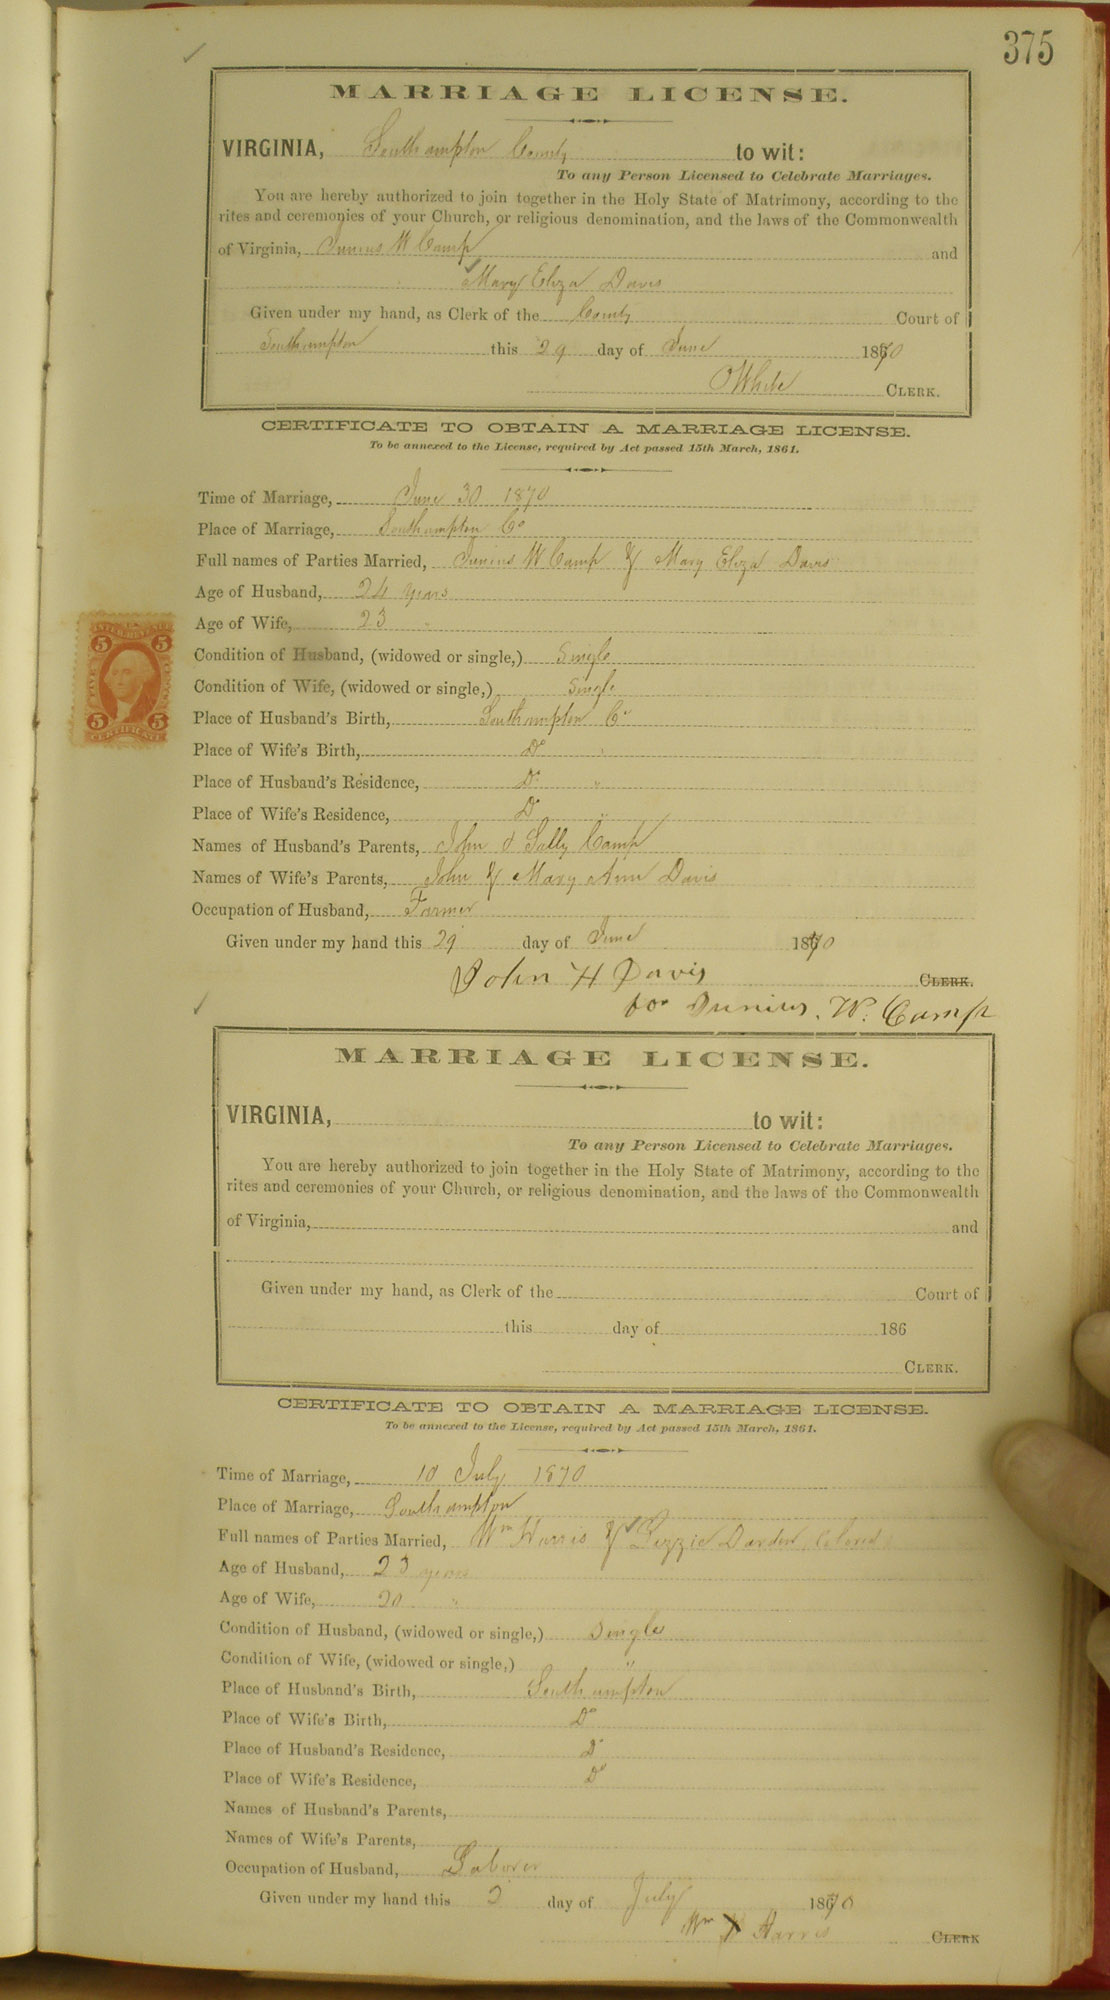 375
MARRIAGE LICENSE.
VIRGINIA, Southampton County to wit:
To any Person Licensed to Celebrate Marriages.
You are hereby authorized to join together in the Holy State of Matrimony, according to the
rites and ceremonies of your Church, or religious denomination, and the laws of the Commonwealth
of Virginia, Junius W Camp and
Mary Eliza Davis
Given under my hand, as Clerk of the County Court of
Southampton this 29 day of June 1870
White CLERK.
CERTIFICATE TO OBTAIN A MARRIAGE LICENSE.
To be annexed to the License, required by Act passed 15th March, 1861.
Time of Marriage, June 30 1870
Place of Marriage, Southampton Co
Full names of Parties Married, Junius W Camp & Mary Eliza Davis
Age of Husband, 24 years
Age of Wife, 23 "
Condition of Husband, (widowed or single,) Single
Condition of Wife, (widowed or single,) Single
Place of Husband's Birth, Southampton Co
Place of Wife's Birth, Do "
Place of Husband's Residence, Do "
Place of Wife's Residence, Do "
Names of Husband's Parents, John & Sally Camp
Names of Wife's Parents, John & Mary Ann Davis
Occupation of Husband, Farmer
Given under my hand this 29 day of June 1870
John H Davis CLERK.
for Junius. W. Camp
U.S. INTER. REVENUE
5 5
FIVE CENTS
5 5
CERTIFICATE
MARRIAGE LICENSE.
VIRGINIA, to wit:
To any Person Licensed to Celebrate Marriages.
You are hereby authorized to join together in the Holy State of Matrimony, according to the
rites and ceremonies of your Church, or religious denomination, and the laws of the Commonwealth
of Virginia, and
Given under my hand, as Clerk of the Court of
this day of 186
CLERK.
CERTIFICATE TO OBTAIN A MARRIAGE LICENSE.
To be annexed to the License, required by Act passed 15th March, 1861.
Time of Marriage, 10 July 1870
Place of Marriage, Southampton
Full names of Parties Married, Wm Harris & Lizzie Darden Colored
Age of Husband, 23 years
Age of Wife, 20 "
Condition of Husband, (widowed or single,) Single
Condition of Wife, (widowed or single,) "
Place of Husband's Birth, Southampton
Place of Wife's Birth, Do
Place of Husband's Residence, Do
Place of Wife's Residence, Do
Names of Husband's Parents,
Names of Wife's Parents,
Occupation of Husband, Laborer
Given under my hand this 2 day of July 1870
Wm X Harris CLERK